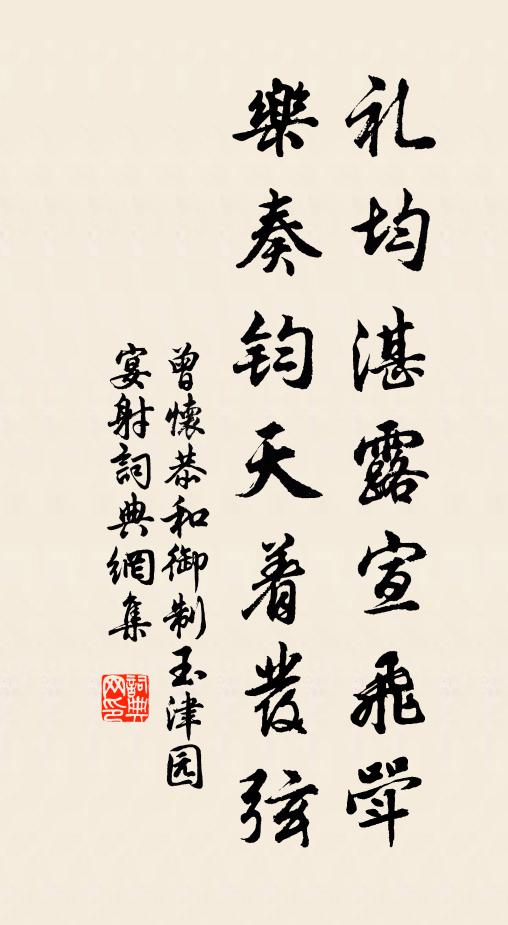 礼均湛露宣飛斝
樂奏鈞天着發弦
曾懷恭和御制玉津园
宴射詞典網集
詞典网印